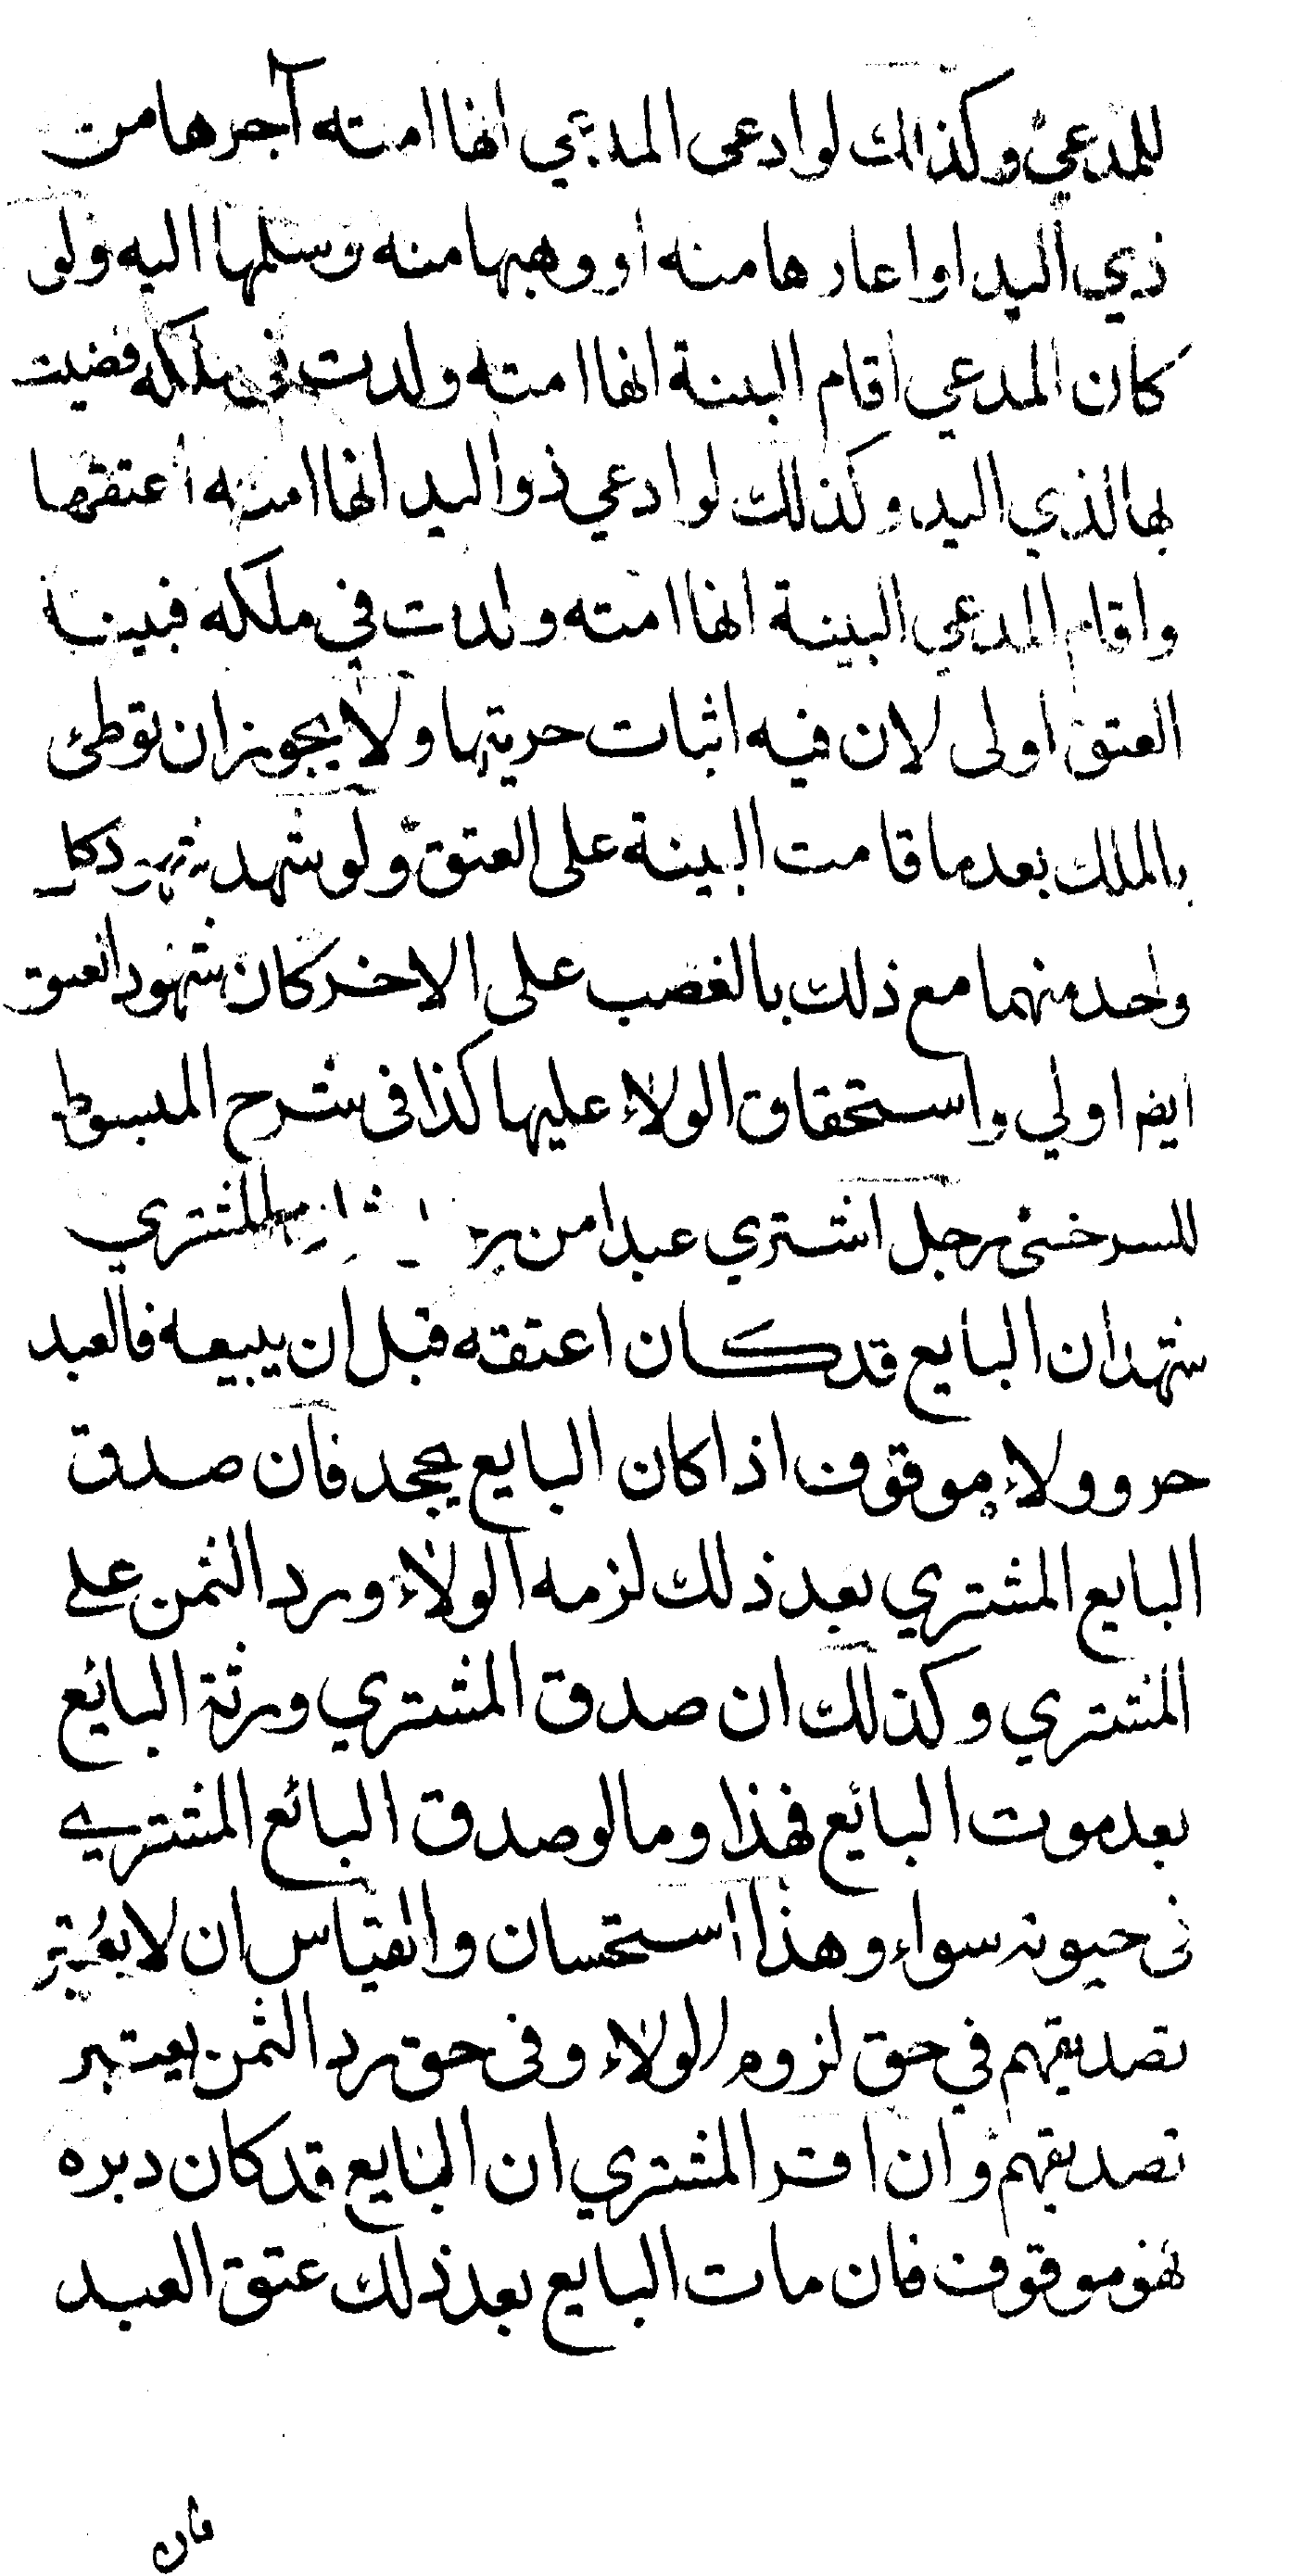 للمدعي وكذلك لو ادعى المدعي انها امته آجرها من
ذي اليد او اعارها منه او وهبها منه وسلمها اليه ولو
كان المدعي اقام البينة انها امته ولدت في ملكه قضيت
بها لذي اليد وكذلك لو ادعي ذو اليد انها امته اعتقها
واقام المدعي البينة انها امته ولدت في ملكه فبينة
العتق اولى لان فيه اثبات حريتها ولا يجوز ان توطئ
بالملك بعد ما قامت البينة على العتق ولو شهد شهود كل
واحد منهما مع ذلك بالغصب على الاخر كان شهود العتق
ايضا اولي واستحقاق الولاء عليها كذا في شرح المبسوط
للسرخسي رجل اشتري عبدا من المشتري
شهد ان البايع قد كان اعتقه قبل ان يبيعه فالعبد
حر وولاءه موقوف اذا كان البايع يجحد فان صدق
البايع المشتري بعد ذلك لزمه الولاء ورد الثمن على
المشتري وكذلك ان صدق المشتري ورثة البايع
بعد موت البائع فهذا وما لو صدق البائع المشتري
في حيوته سواء وهذا استحسان والقياس ان لا يعتبر
تصديقهم في حق لزوم الولاء وفى حق رد الثمن يعتبر
تصديقهم وان اقر المشتري ان البايع قد كان دبره
فهو موقوف فان مات البايع بعد ذلك عتق العبد
فان